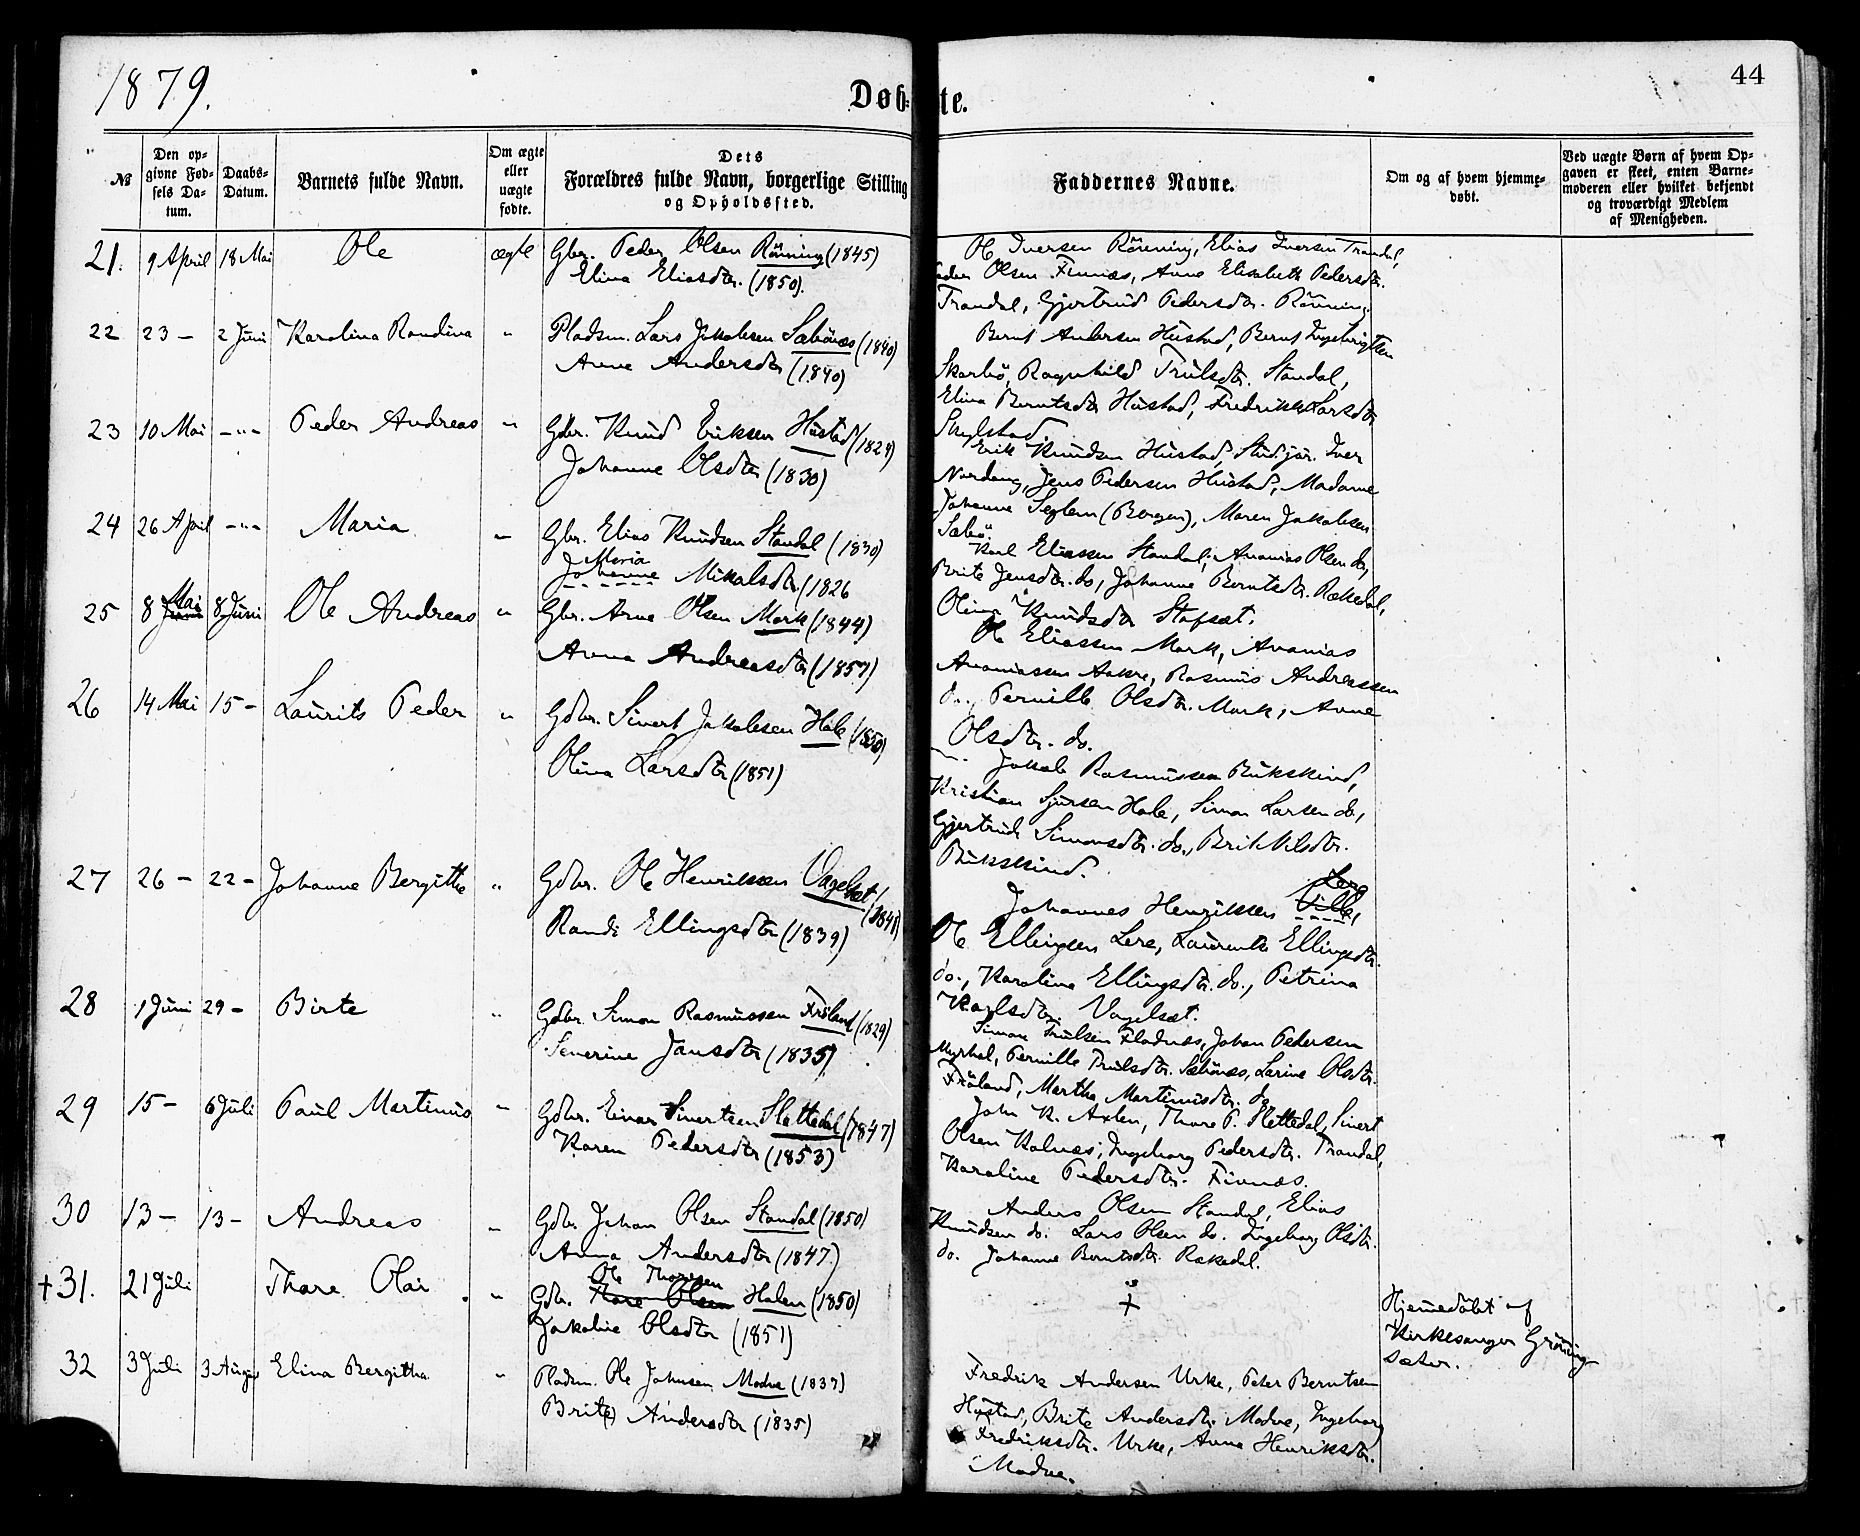 1879.
Døbte.
44
№
Den opgivne Fødsels Datum.
Daabs-Datum.
Barnets fulde Navn.
Om ægte eller uægte fødte.
Dets Forældres fulde Navn, borgerlige Stilling og Opholdssted.
Faddernes Navne.
Om og af hvem hjemmedøbt.
Ved uægte Børn af hvem Opgaven er skeet, enten Barnemoderen eller hvilket bekjendt og troværdigt Medlem af Menigheden.
21. 9 April 18 Mai Ole ægte Gbr. Peder Olsen Rönning (1845)
Elina Eliasdtr. (1850).
Ole Iversen Rönning, Elias Iversen Trandal,
Olsen Finnæs, Anne Elisabeth Pedersdtr.
Trandal, Gjertrud Pedersdtr. Rönning
22 23 – 2 Juni Karolina Randina " Pladsm. Lars Jakobsen Sæbönæs (1840)
Anne Andersdtr (1840)
Bernt Andersen Hustad, Bernt Ingebrigtsen
Skarbö, Ragnhild Trulsdtr. Standal,
Elina Berntsdtr Hustad, Fredrikke Larsdtr
Skylstad.
23 10 Mai –"– Peder Andreas " Gbr. Knud Eriksen Hustad (1829)
Johanne Olsdtr (1830)
Erik Knudsen Hustad, Stud. jur. Iver
Nordang, Jens Pedersen Hustad, Madame
Johanne Seglem (Bergen), Maren Jakobsen
Sæbö.
24 26 April –"– Maria " Gbr. Elias Knudsen Standal (1830)
Maria
Johanne Mikalsdtr (1826
Karl Eliassen Standal, Ananias Olsen do,
Brite Jensdtr. do, Johanne Berntsdtr. Rækedal,
Olina Knudsdtr Stafset.
25 8 Mai Juni 8 Juni Ole Andreas " Gbr. Arne Olsen Mork (1844)
Anna Andreasdtr (1857)
Ole Eliassen Mork, Ananias
Ananiassen Aakre, Rasmus Andreassen
do., Pernille Olsdtr. Mork, Anne
Olsdtr. do.
26 14 Mai 15 – Laurits Peder " Gdbr. Sivert Jakobsen Hole (1850)
Olina Larsdtr (1851)
Jakob Rasmussen Bukskind,
Kristian Sjursen Hole, Simon Larsen do,
Gjertrud Simonsdtr. do., Brit Nilsdtr.
Bukskind.
27 26 – 22 – Johanne Bergithe " Gdbr. Ole Henriksen Vagelset (1841)
Randi Ellingsdtr (1839)
Lere
Johannes Henriksen
Ole Ellingsen Lere, Laurentse Ellingsdtr.
do., Karoline Ellingsdtr. do., Petrina
Karlsdtr. Vagelsæt.
28 1 Juni 29 – Birte " Gdbr. Simon Rasmussen Fröland (1829)
Severine Jansdtr (1835)
Simon Trulsen Fladnæs, Johan Pedersen
Myrhol, Pernille Trulsdtr. Sæbönæs, Larine Olsdtr.
Fröland, Martha Martinusdtr. do
29 15 – 6 Juli Paul Martinus " Gdbr. Einar Sivertsen Slettedal (1847)
Karen Pedersdtr (1853)
John K. Axlen, Thore P. Slettedal, Sivert
Olsen Kolnæs, Ingeborg Pedersdtr. Trandal,
Karoline Pedersdtr. Finnæs.
30 13 – 13 – Andreas " Gdbr. Johan Olsen Standal (1850)
Anna Andersdtr (1847.)
Anders Olsen Standal, Elias
Knudsen do. Lars Olsen do. Ingeborg Olsdtr.
do. Johanne Berntsdtr. Rækedal.
† 31. 21 Juli Thore Olai " Ole Thoresen
Gdbr. Thore Olsen Holen (1850)
Jakobine Olsdtr (1851)
†
Hjemmedöbt af
Kirkesanger Gröning
sæter.
32 3 Juli 3 Aug Elina Bergitha " Pladsm. Ole Johnsen Modve (1837)
Brite Andersdtr (1835)
Fredrik Andersen Urke, Peter Berntsen
Hustad, Brite Andersdtr. Modve, Ingeborg
Fredriksdtr. Urke, Anne Henriksdtr.
Modve.